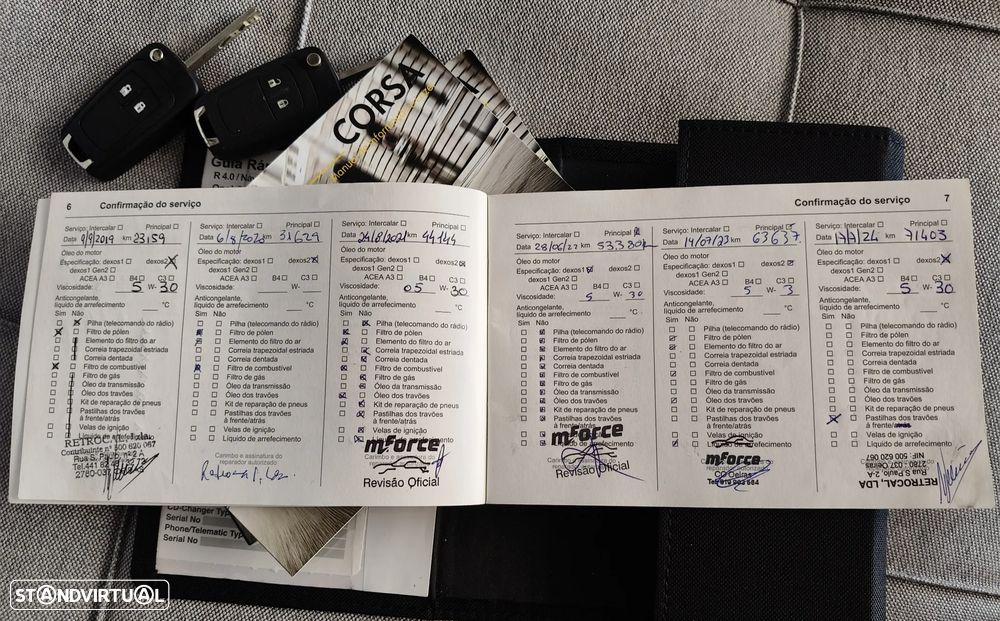 CORSA
Guia Rá
R 4.0 / Na
6 Confirmação do serviço
Serviço: Intercalar Principal
Data 9/9/2019 km 23159
Óleo do motor
Especificação: dexos1 dexos2
dexos1 Gen2
ACEA A3 B4 C3
Viscosidade: 5 W- 30
Anticongelante,
líquido de arrefecimento °C
Sim Não
Pilha (telecomando do rádio)
Filtro de pólen
Elemento do filtro do ar
Correia trapezoidal estriada
Correia dentada
Filtro de combustível
Filtro de gás
Óleo da transmissão
Óleo dos travões
Kit de reparação de pneus
Pastilhas dos travões
à frente/atrás
Velas de ignição
Rua S. Paulo, nº 2 A
Serviço: Intercalar Principal
km 31629
Óleo do motor
Especificação: dexos1 dexos2
dexos1 Gen2
ACEA A3 B4 C3
Viscosidade: W-
Anticongelante,
líquido de arrefecimento °C
Sim Não
Pilha (telecomando do rádio)
Filtro de pólen
Elemento do filtro do ar
Correia trapezoidal estriada
Correia dentada
Filtro de combustível
Filtro de gás
Óleo da transmissão
Óleo dos travões
Kit de reparação de pneus
Pastilhas dos travões
à frente/atrás
Velas de ignição
Líquido de arrefecimento
Carimbo e assinatura do
reparador autorizado
Serviço: Intercalar Principal
Data 24/8/2021 km 44144
Óleo do motor
Especificação: dexos1 dexos2
dexos1 Gen2
ACEA A3 B4 C3
Viscosidade: 05 W- 30
Anticongelante,
líquido de arrefecimento °C
Sim Não
Pilha (telecomando do rádio)
Filtro de pólen
Elemento do filtro do ar
Correia trapezoidal estriada
Correia dentada
Filtro de combustível
Filtro de gás
Óleo da transmissão
Óleo dos travões
Kit de reparação de pneus
Pastilhas dos travões
à frente/atrás
Velas de ignição
mforce
Revisão Oficial
Confirmação do serviço 7
Serviço: Intercalar Principal
Data km
Óleo do motor
Especificação: dexos1 dexos2
dexos1 Gen2
ACEA A3 B4 C3
Viscosidade: 5 W- 30
Anticongelante,
líquido de arrefecimento °C
Sim Não
Pilha (telecomando do rádio)
Filtro de pólen
Elemento do filtro do ar
Correia trapezoidal estriada
Correia dentada
Filtro de combustível
Filtro de gás
Óleo da transmissão
Óleo dos travões
Kit de reparação de pneus
Pastilhas dos travões
à frente/atrás
Velas de ignição
mforce
Revisão Oficial
Serviço: Intercalar Principal
Data 14/07/23 km 63637
Óleo do motor
Especificação: dexos1 dexos2
dexos1 Gen2
ACEA A3 B4 C3
Viscosidade: 5 W- 3
Anticongelante,
líquido de arrefecimento °C
Sim Não
Pilha (telecomando do rádio)
Filtro de pólen
Elemento do filtro do ar
Correia trapezoidal estriada
Correia dentada
Filtro de combustível
Filtro de gás
Óleo da transmissão
Óleo dos travões
Kit de reparação de pneus
Pastilhas dos travões
à frente/atrás
Velas de ignição
mforce
CD Oeiras
Serviço: Intercalar Principal
Data km 71403
Óleo do motor
Especificação: dexos1 dexos2
dexos1 Gen2
ACEA A3 B4 C3
Viscosidade: 5 W- 30
Anticongelante,
líquido de arrefecimento °C
Sim Não
Pilha (telecomando do rádio)
Filtro de pólen
Elemento do filtro do ar
Correia trapezoidal estriada
Correia dentada
Filtro de combustível
Filtro de gás
Óleo da transmissão
Óleo dos travões
Kit de reparação de pneus
Pastilhas dos travões
à frente/atrás
Velas de ignição
Líquido de arrefecimento
RETROCAL LDA
Rua S Paulo, 2-A
2780 - 037 Oeiras
NIF 500 620 067
CD-Changer Typ
Serial No
Phone/Telematic Typ
Serial No
STANDVIRTUAL